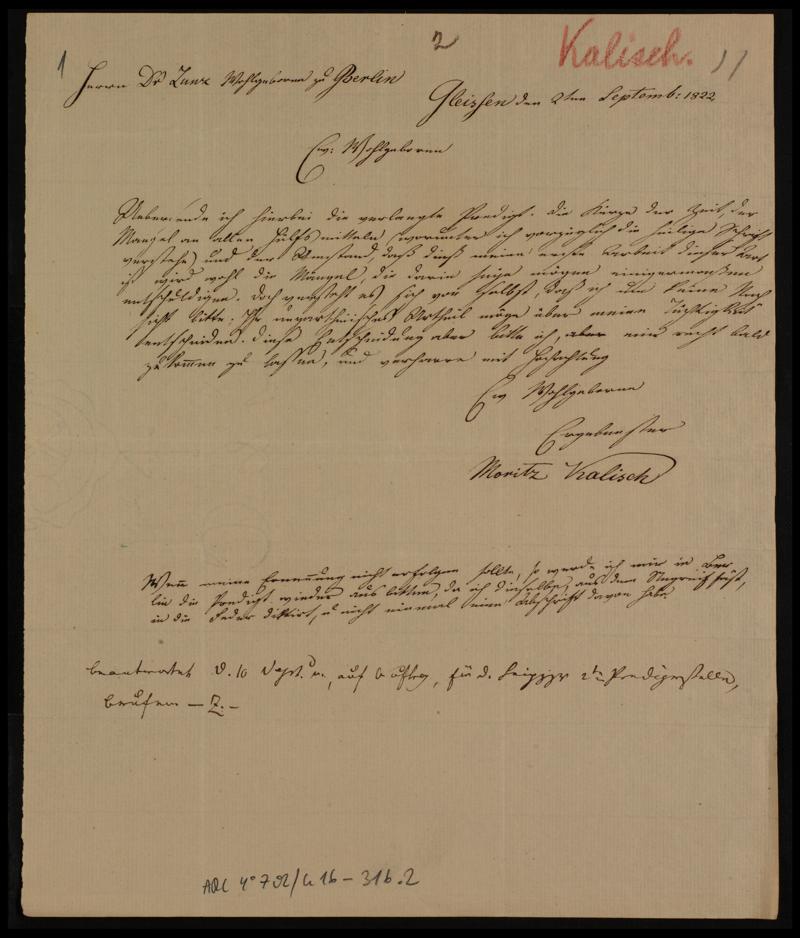 1
2
Kalisch.
Herrn Dr Zunz Wohlgeboren zu Berlin
Gleissen den 2ten Septemb: 1822
Ew: Wohlgeboren
Uebersende ich hierbei die verlangte Predigt. Die Kürze der Zeit, der
Mangel an allen Hülfsmitteln (worunter ich vorzüglich die heilige Schrift
verstehe) und der Umstand, daß dieß meine erste Arbeit dieser Art
ist wird wohl die Mängel, die darin sein mögen einigermaßen
entschuldigen. Doch versteht es sich von selbst, daß ich um keine Nach
sicht bitte. Ihr unpartheiisches Urtheil möge über meine Tüchtigkeit
entscheiden. Diese Entscheidung aber bitte ich, aber mir recht bald
zukommen zu lassen, und verharre mit Hochachtung
Ew Wohlgeboren
Ergebenster
Moritz Kalisch
Wenn meine Ernennung nicht erfolgen sollte, so werde ich mir in Ber
lin die Predigt wieder ausbitten, da ich dieselbe, aus dem Stegreif fast,
in die Feder diktirt, u nicht einmal eine Abschrift davon habe.
beantwortet d. 10 Sept. auf, für d. Leipziger 2te Predigerstelle,
berufen — Z. —
ARC 4° 792/G 16 – 316.2